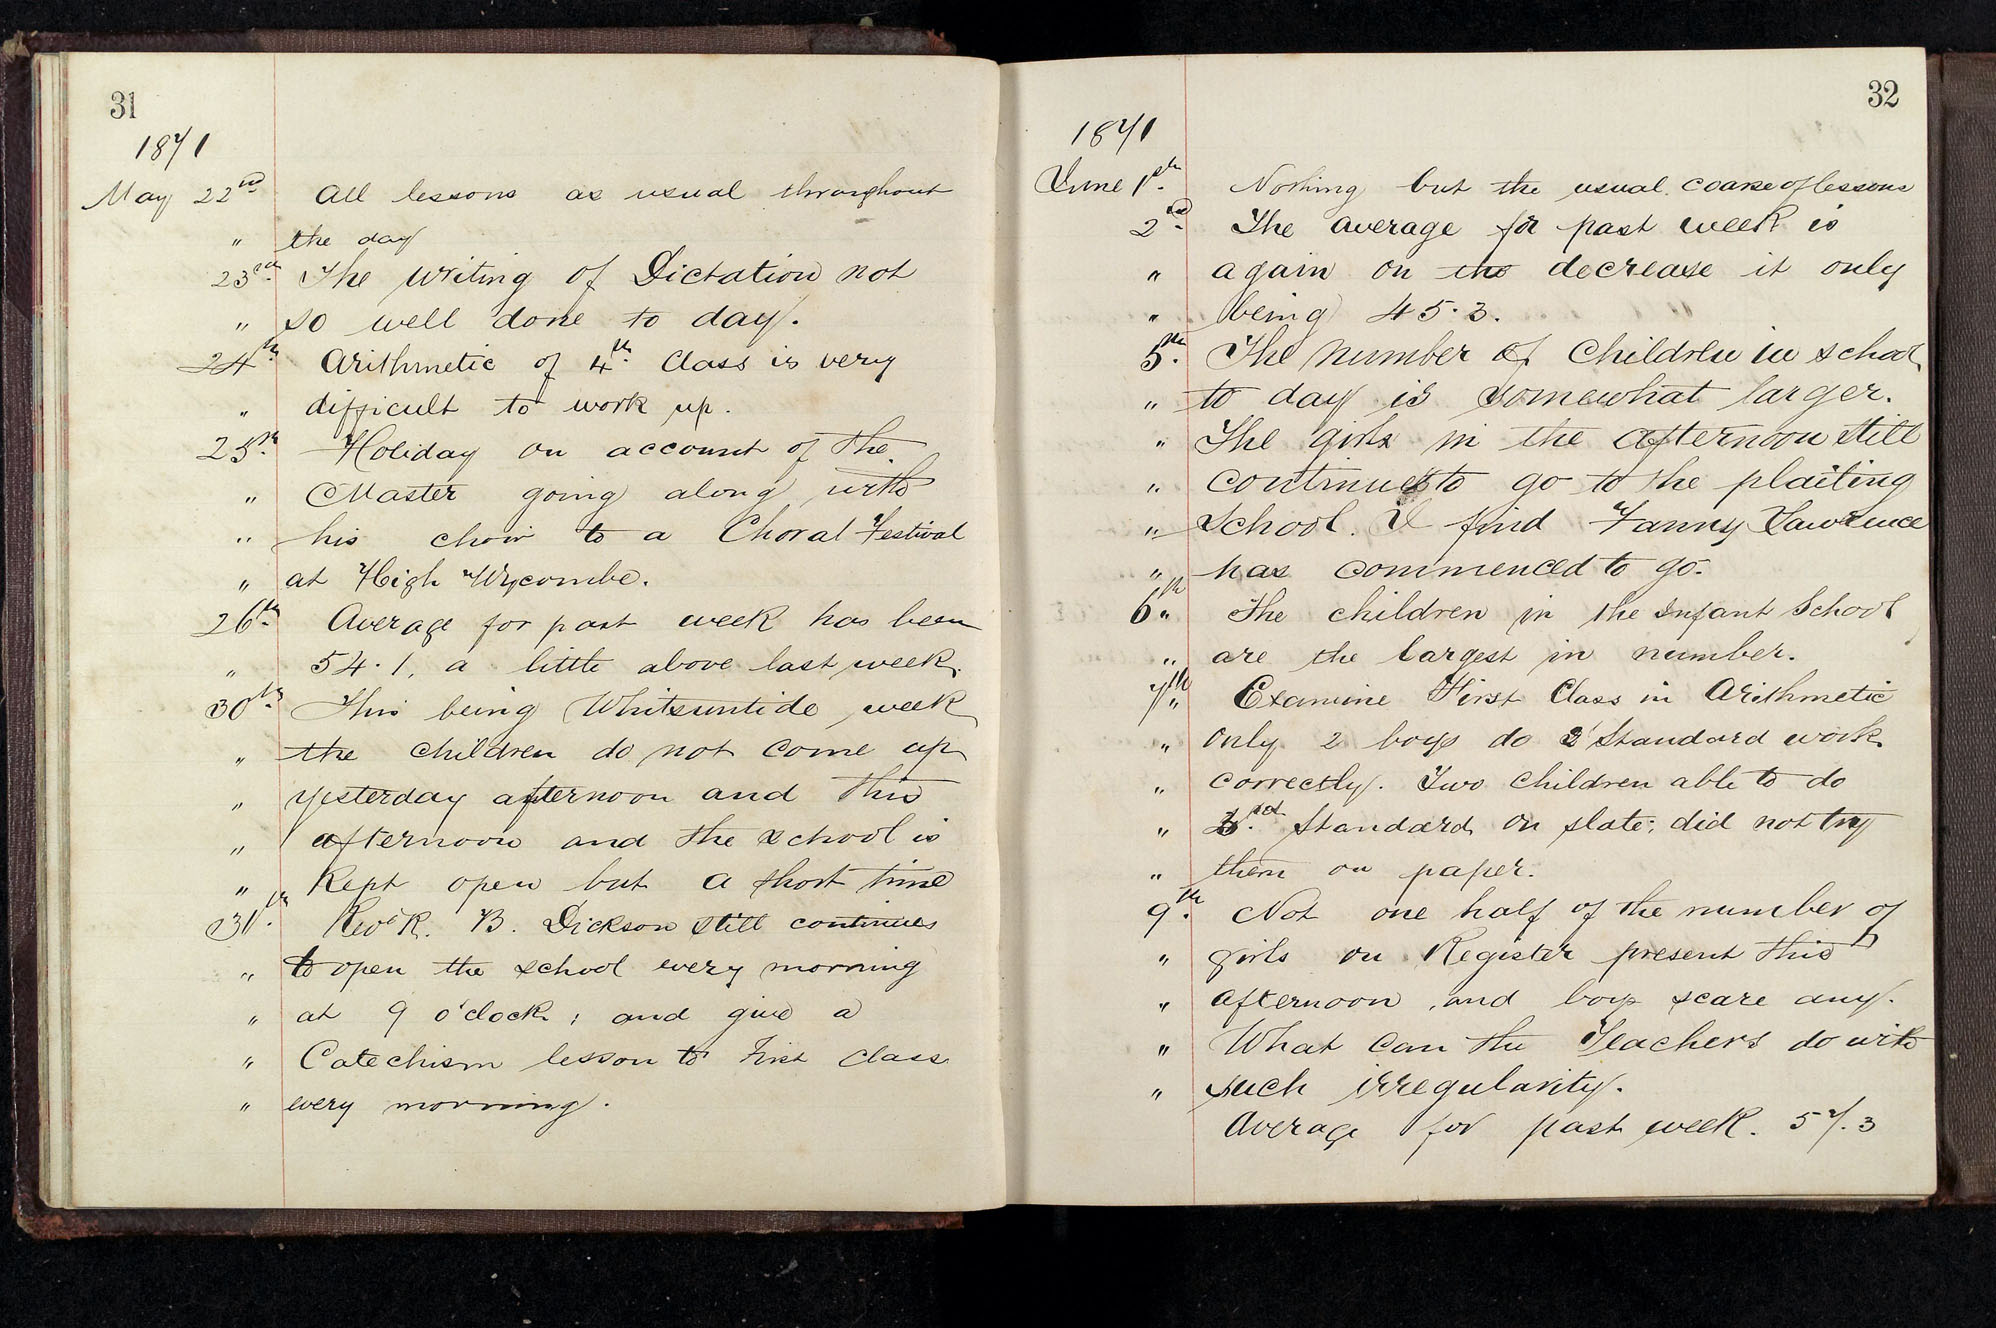 31
1871
May 22nd All lessons as usual throughout
" the day
23rd The writing of Dictation not
" so well done to day.
24th Arithmetic of 4th Class is very
" difficult to work up.
25th Holiday on account of the
" Master going along with
" his choir to a Choral Festival
" at High Wycombe.
26th Average for past week has been
" 54.1, a little above last week.
30th This being Whitsuntide week
" the children do not come up
" yesterday afternoon and this
" afternoon and the school is
" kept open but a short time
31st Revd R. B. Dickson still continues
" to open the school every morning
" at 9 o'clock; and give a
" Catechism lesson to First Class
" every morning.
32
1871
June 1st Nothing but the usual coarse of lessons
2nd The average for past week is
" again on the decrease it only
" being 45.3.
5th The number of Children in school
" to day is somewhat larger.
" The girls in the afternoon still
" continue to go to the plaiting
" School. I find Fanny Lawrence
" has commenced to go.
6th The children in the Infant School
" are the largest in number.
7th Examine First Class in Arithmetic
" only 2 boys do 2 Standard work
" correctly. Two children able to do
" 3rd Standard on slate; did not try
" them on paper.
9th Not one half of the number of
" girls on Register present this
" afternoon, and boys scare any.
" What can the Teachers do with
" such irregularity.
Average for past week. 57.3